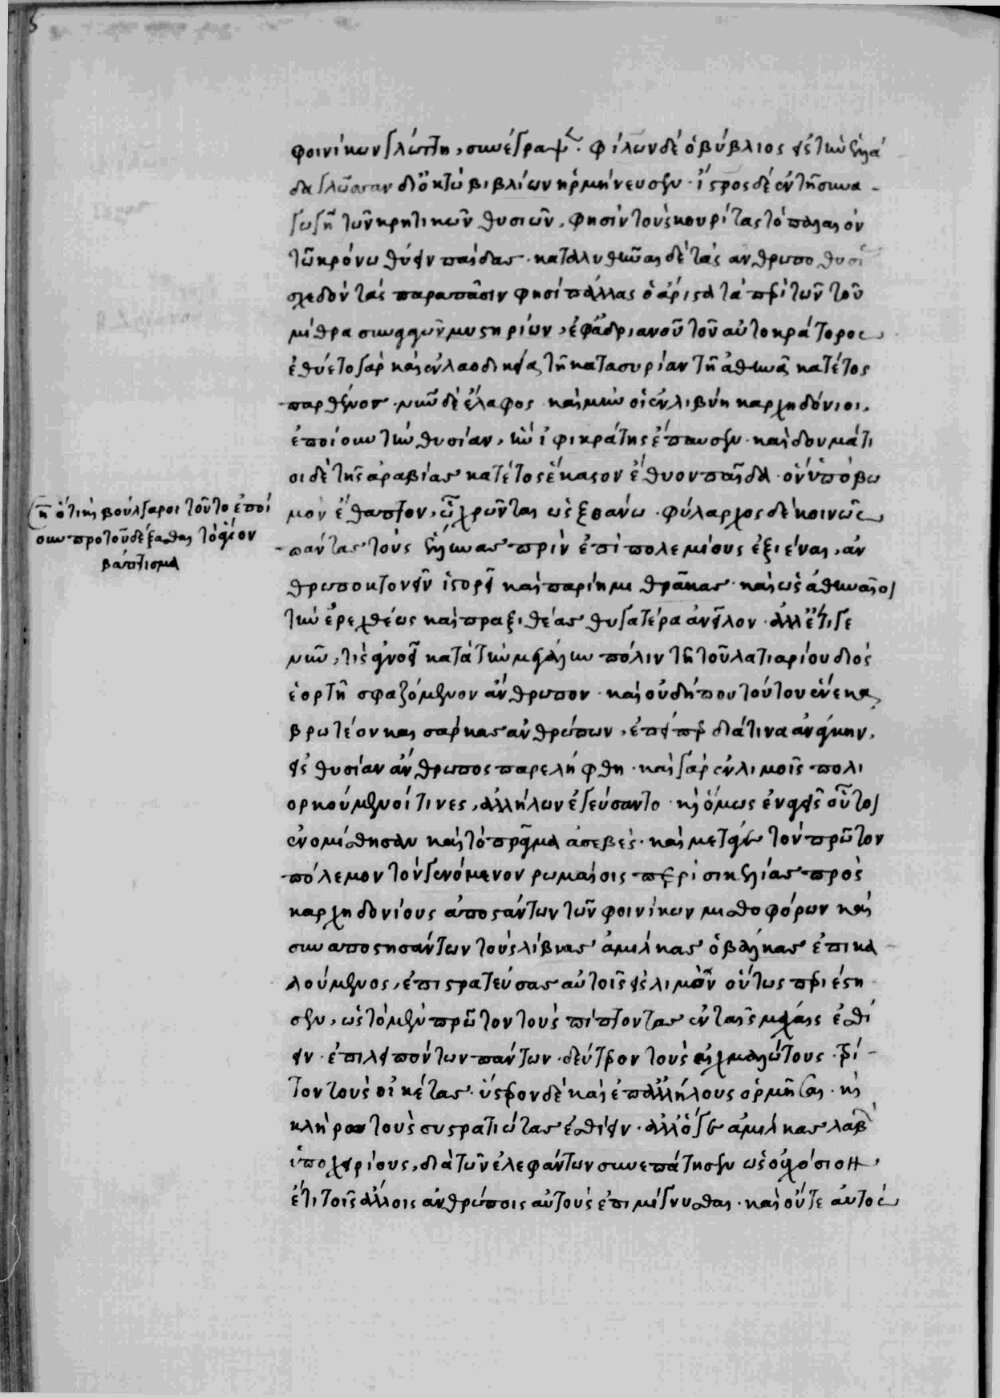 φοινίκων γλώττη, συνέγραψε. φίλων δὲ ὁ βύβλιος εἰς τὴν ἑλλά
δα γλῶσσαν δι ὀκτὼ βιβλίων ἡρμήνευσεν. ἴστρος δὲ ἐν τῇ συνα
γωγῇ τῶν κρητικῶν θυσιῶν, φησὶν τοὺς κουρίτας τὸ παλαιὸν
τῶ κρόνω θύειν παῖδας. καταλυθῆναι δὲ τὰς ἀνθρωποθυσί
σχεδὸν τὰς παρὰ πᾶσιν φησὶ πάλλας ὁ ἄριστα τὰ περὶ τῶν τοῦ
μίθρα συναγαγὼν μυστηρίων, ἐφ ἀδριανοῦ τοῦ αὐτοκράτορος
ἐθύετο γὰρ καὶ ἐν λαοδικείας τῇ κατὰ συρίαν τῇ ἀθηνᾶ κατ έτος
παρθένος. νῦν δὲ ἔλαφος. καὶ μὴν οἱ ἐν λιβύη καρχηδόνιοι,
ἐποίουν τὴν θυσίαν, ἣν ἰφικράτης ἔπαυσεν. καὶ δουμάτι
οι δὲ τῆς ἀραβίας κατ έτος ἕκαστον ἔθυον παῖδα. ὃν ὑπὸ βω
μὸν ἔθαπτον, ᾧ χρῶνται ὡς ξοάνω. φύλαρχος δὲ κοινῶς
πάντας τοὺς ἕλληνας πρὶν ἐπὶ πολεμίους ἐξιέναι, ἀν
θρωποκτονεῖν ἱστορεῖ
τὴν ἐρεχθέως καὶ πραξιθέας θυγατέρα ἀνεῖλον. ἀλλ ἔτι γε
νῦν, τίς ἀγνοεῖ κατὰ τὴν μεγάλην πόλιν τῇ τοῦ λατιαρίου διὸς
ἑορτῇ σφαζόμενον ἄνθρωπον. καὶ οὐ δήπου τούτου ἕνεκα
βρωτέον καὶ σάρκας ἀνθρώπων, ἐπεὶ περ διά τινα ἀνάγκην,
εἰς θυσίαν ἄνθρωπος παρελήφθη. καὶ γὰρ ἐν λιμοῖς πολι
ορκούμενοί τινες, ἀλλήλων ἐγεύσαντο. καὶ ὅμως ἐναγεῖς οὗτοι
ἐνομίσθησαν καὶ τὸ πρᾶγμα ἀσεβές. καὶ μετά γε τὸν πρῶτον
πόλεμον τὸν γενόμενον ρωμαίοις περὶ σικελίας πρὸς
καρχηδονίους ἀποστάντων τῶν φοινίκων μισθοφόρων καὶ
συναποστησάντων τοὺς λίβυας ἀμίλκας ὁ βάλκας ἐπικα
λούμενος, ἐπιστρατεύσας αὐτοῖς εἰς λιμὸν οὕτως περιέστη
σεν, ὡς τὸ μὲν πρῶτον τοὺς πίπτοντας ἐν ταῖς μάχαις ἐσθί
ειν. ἐπιλειπόντων πάντων. δεύτερον τοὺς αἰχμαλώτους. τρί
τον τοὺς οἰκέτας. ὕστερον δὲ καὶ ἐπ ἀλλήλους ὁρμῆσαι. καὶ
κλήρω τοὺς συστρατιώτας ἐσθίειν. ἀλλ ὅ γε ἀμίλκας λαβ
ὑποχειρίους, διὰ τῶν ἐλεφάντων συνεπάτησεν ὡς οὐχ ὅσιον
ἔτι τοῖς ἄλλοις ἀνθρώποις αὐτοὺς ἐπιμίγνυσθαι. καὶ οὔτε αὐτὸς
ὅτι καὶ βούλγαροι τοῦτο ἐποί
ουν πρὸ τοῦ δέξασθαι τὸ θεῖον
βάπτισμα